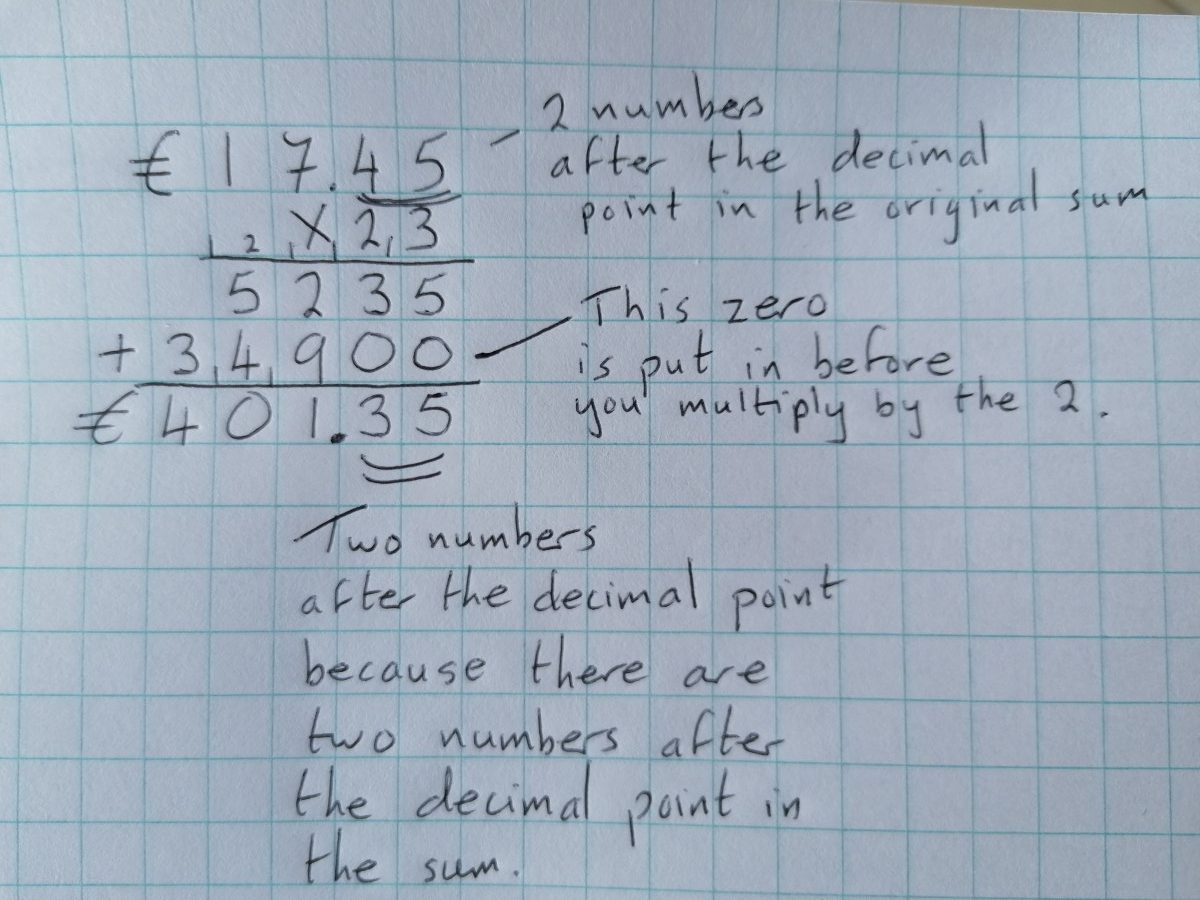 €17.45
1 2 1 X 1 2 1 3
5235
+ 3 1 4 1 900
€401.35
2 numbers
after the decimal
point in the original sum
This zero
is put in before
you multiply by the 2.
Two numbers
after the decimal point
because there are
two numbers after
the decimal point in
the sum.